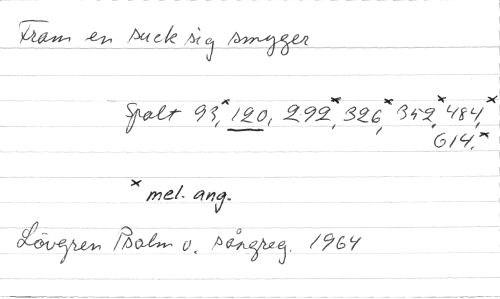 Fram en suck sig smyger
Spalt 93,* 120, 292,* 326,* 352,* 484,*
614.*
* mel. ang.
Lövgren Psalm o. sångreg. 1964